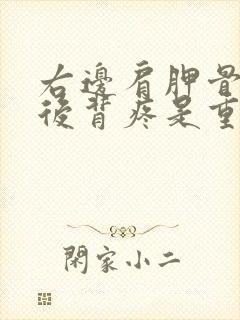 右邊肩胛骨
後背疼是重
閑家小二